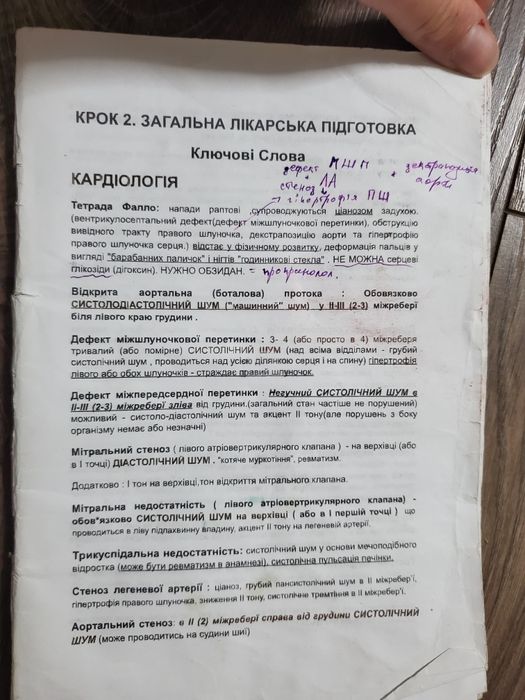 КРОК 2. ЗАГАЛЬНА ЛІКАРСЬКА ПІДГОТОВКА
Ключові Слова
дефект МШП
стеноз ЛА
гіпертрофія ПШ
аорти
КАРДІОЛОГІЯ
Тетрада Фалло: напади раптові ,супроводжуються ціанозом задухою.
(вентрикулосептальний дефект(дефект міжшлуночкової перетинки), обструкцію
вивідного тракту правого шлуночка, декстрапозицію аорти та гіпертрофію
правого шлуночка серця.) відстає у фізичному розвитку, деформація пальців у
вигляді "барабанних паличок" і нігтів "годинникові стекла" . НЕ МОЖНА серцеві
глікозиди (дігоксин). НУЖНО ОБЗИДАН. = пропранолол.
Відкрита аортальна (боталова) протока : Обовязково
СИСТОЛОДІАСТОЛІЧНИЙ ШУМ ("машинний" шум) у II-III (2-3) міжребері
біля лівого краю грудини .
Дефект міжшлуночкової перетинки : 3- 4 (або просто в 4) міжреберя
тривалий (або помірне) СИСТОЛІЧНИЙ ШУМ (над всіма відділами - грубий
систолічний шум , проводиться над усією ділянкою серця і на спину) гіпертрофія
лівого або обох шлуночків - страждає правий шлуночок.
Дефект міжпередсердної перетинки : Негучний СИСТОЛІЧНИЙ ШУМ в
II-III (2-3) міжребері зліва від грудини,(загальний стан частіше не порушений)
можливий - систоло-діастолічний шум та акцент II тону(але порушень з боку
організму немає або незначні)
Мітральний стеноз ( лівого атріовертрикулярного клапана ) - на верхівці (або
в I точці) ДІАСТОЛІЧНИЙ ШУМ . "котяче муркотіння", ревматизм.
Додатково : I тон на верхівці,тон відкриття мітрального клапана.
Мітральна недостатність ( лівого атріовертрикулярного клапана) -
обов"язково СИСТОЛІЧНИЙ ШУМ на верхівці ( або в I першій точці ) що
проводиться в ліву підпахвинну владину, акцент II тону на легеневій артерії.
Трикуспідальна недостатність: систолічний шум у основи мечоподібного
відростка (може бути ревматизм в анамнезі), систолічна пульсація печінки.
Стеноз легеневої артерії : ціаноз, грубий пансистолічний шум в II міжребер'ї,
гіпертрофія правого шлуночка, зниження II тону, систолічне тремтіння в II міжребер'ї.
Аортальний стеноз: в II (2) міжребері справа від грудини СИСТОЛІЧНИЙ
ШУМ (може проводитись на судини шиї)